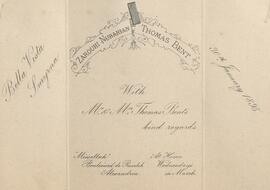 Zarouhi Nubarian
Thomas Bent
Bella Vista
Smyrna
30th January 1896
With
Mr. & Mrs. Thomas Bent's
kind regards
Boulevard de Ramleh
Alexandria
At Home
Wednesdays
in March.